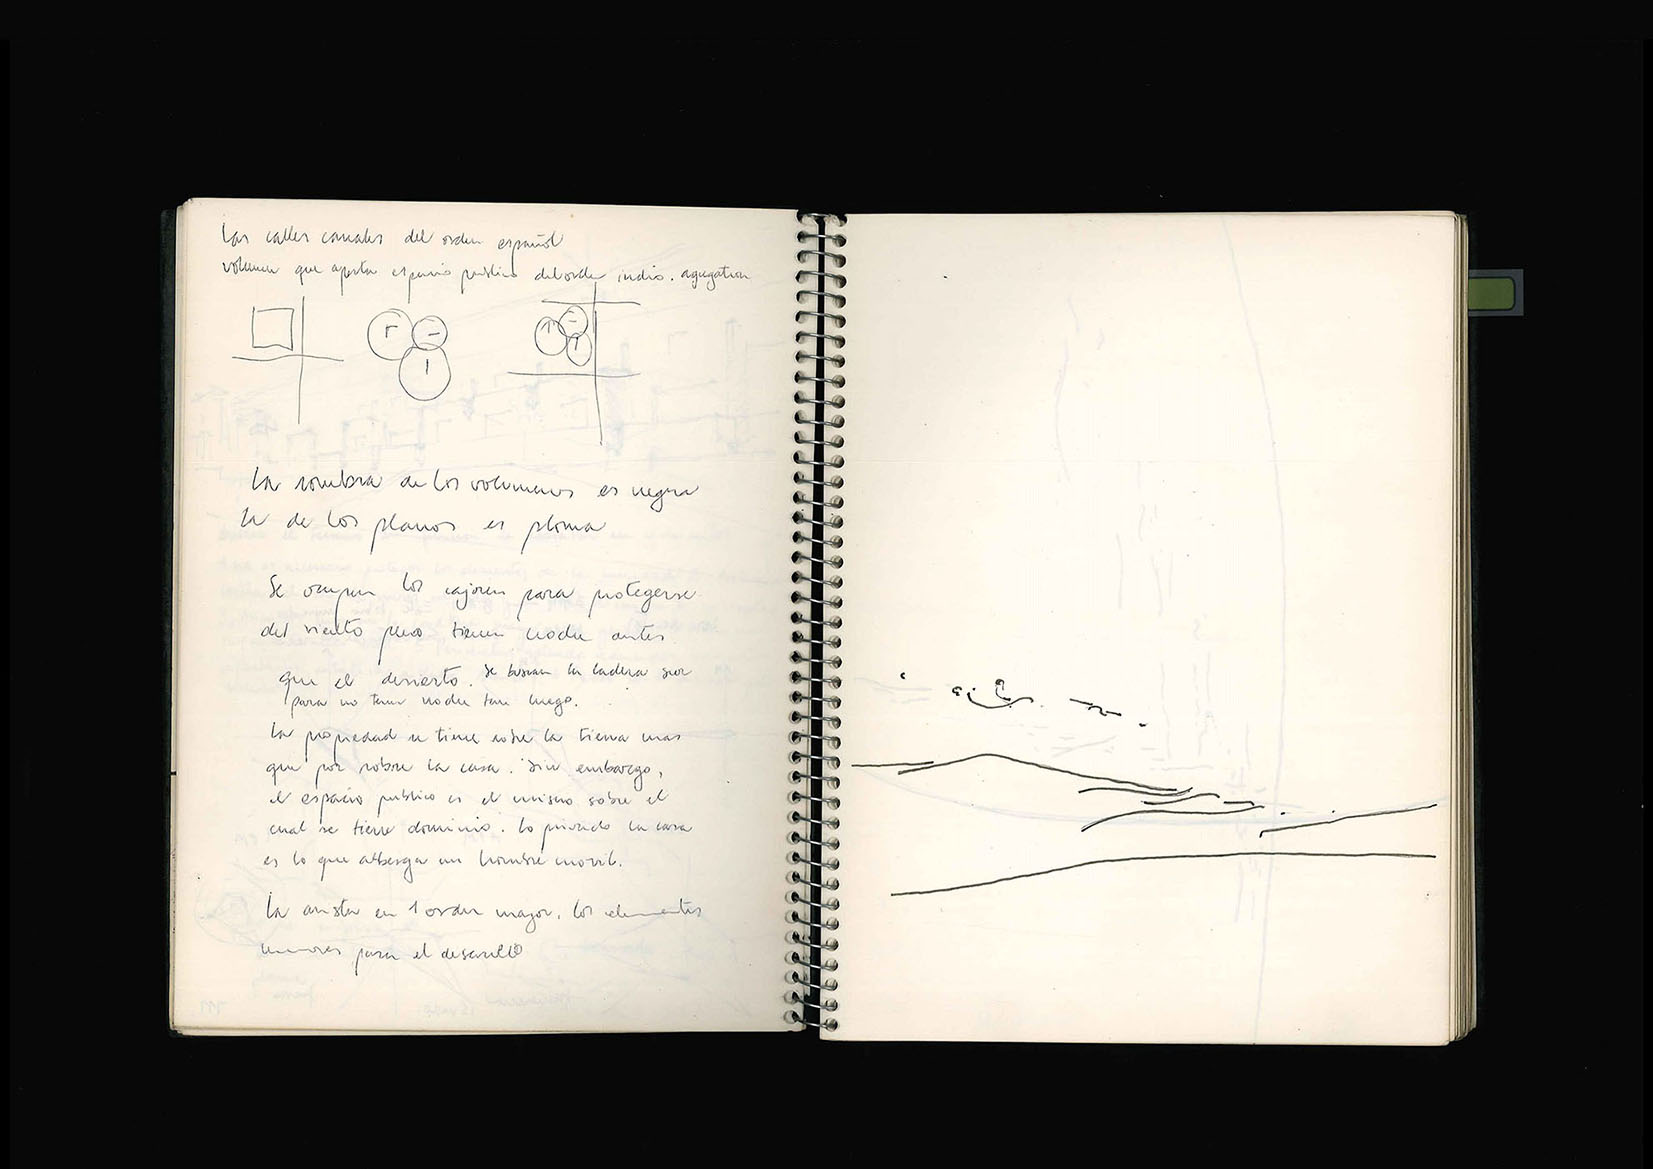 Las calles canales del orden español
volumen que aporta espacio publico del orden indio. agregation
La sombra de los volumenes es negra
la de los planos es ploma
Se ocupan los cajones para protegerse
del viento pero tienen noche antes
que el desierto. Se buscan la ladera sur
para no tener noche tan luego.
La propiedad se tiene sobre la tierra mas
que por sobre la casa. Sin embargo,
el espacio publico es el mismo sobre el
cual se tiene dominio. Lo privado la casa
es lo que alberga un hombre movil.
La arista en 1 orden mayor, los elementos
menores para el desarrollo